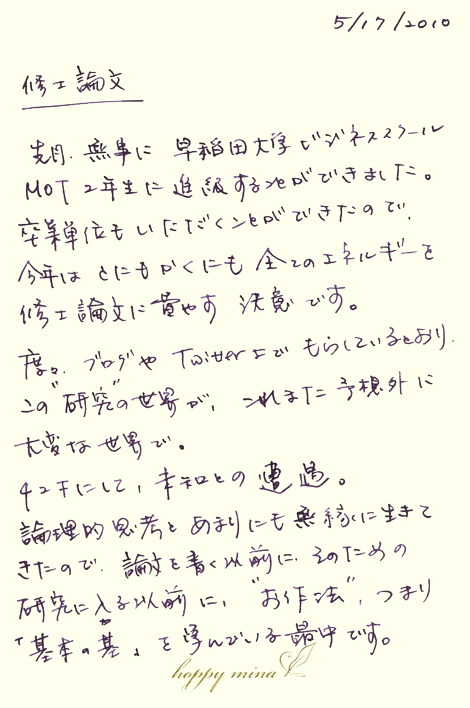 5/17/2010
修士論文
先月、無事に 早稲田大学ビジネススクール
MOT 2年生に進級することができました。
卒業単位もいただくことができたので、
今年はとにもかくにも 全てのエネルギーを
修士論文に費やす 決意です。
度々、ブログや Twitter上で もらしているとおり、
この"研究"の世界が、これまた予想外に
大変な世界で。
42才にして、未知との遭遇。
論理的思考と あまりにも無縁に生きて
きたので、論文を書く以前に、そのための
研究に入る以前に、"お作法"、つまり
「基本の基」を学んでいる最中です。
happy mina